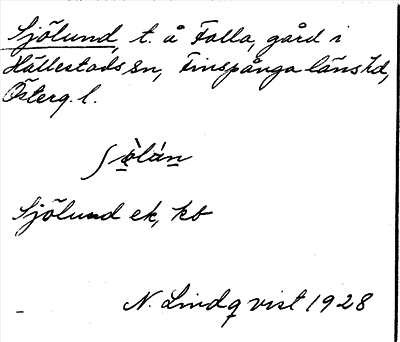 Sjölund, t. å Folla, gård i
Hällestads sn, Finspånga läns hd,
Österg. l.
ʃòlún
Sjölund ek, kb
N. Lindqvist 1928